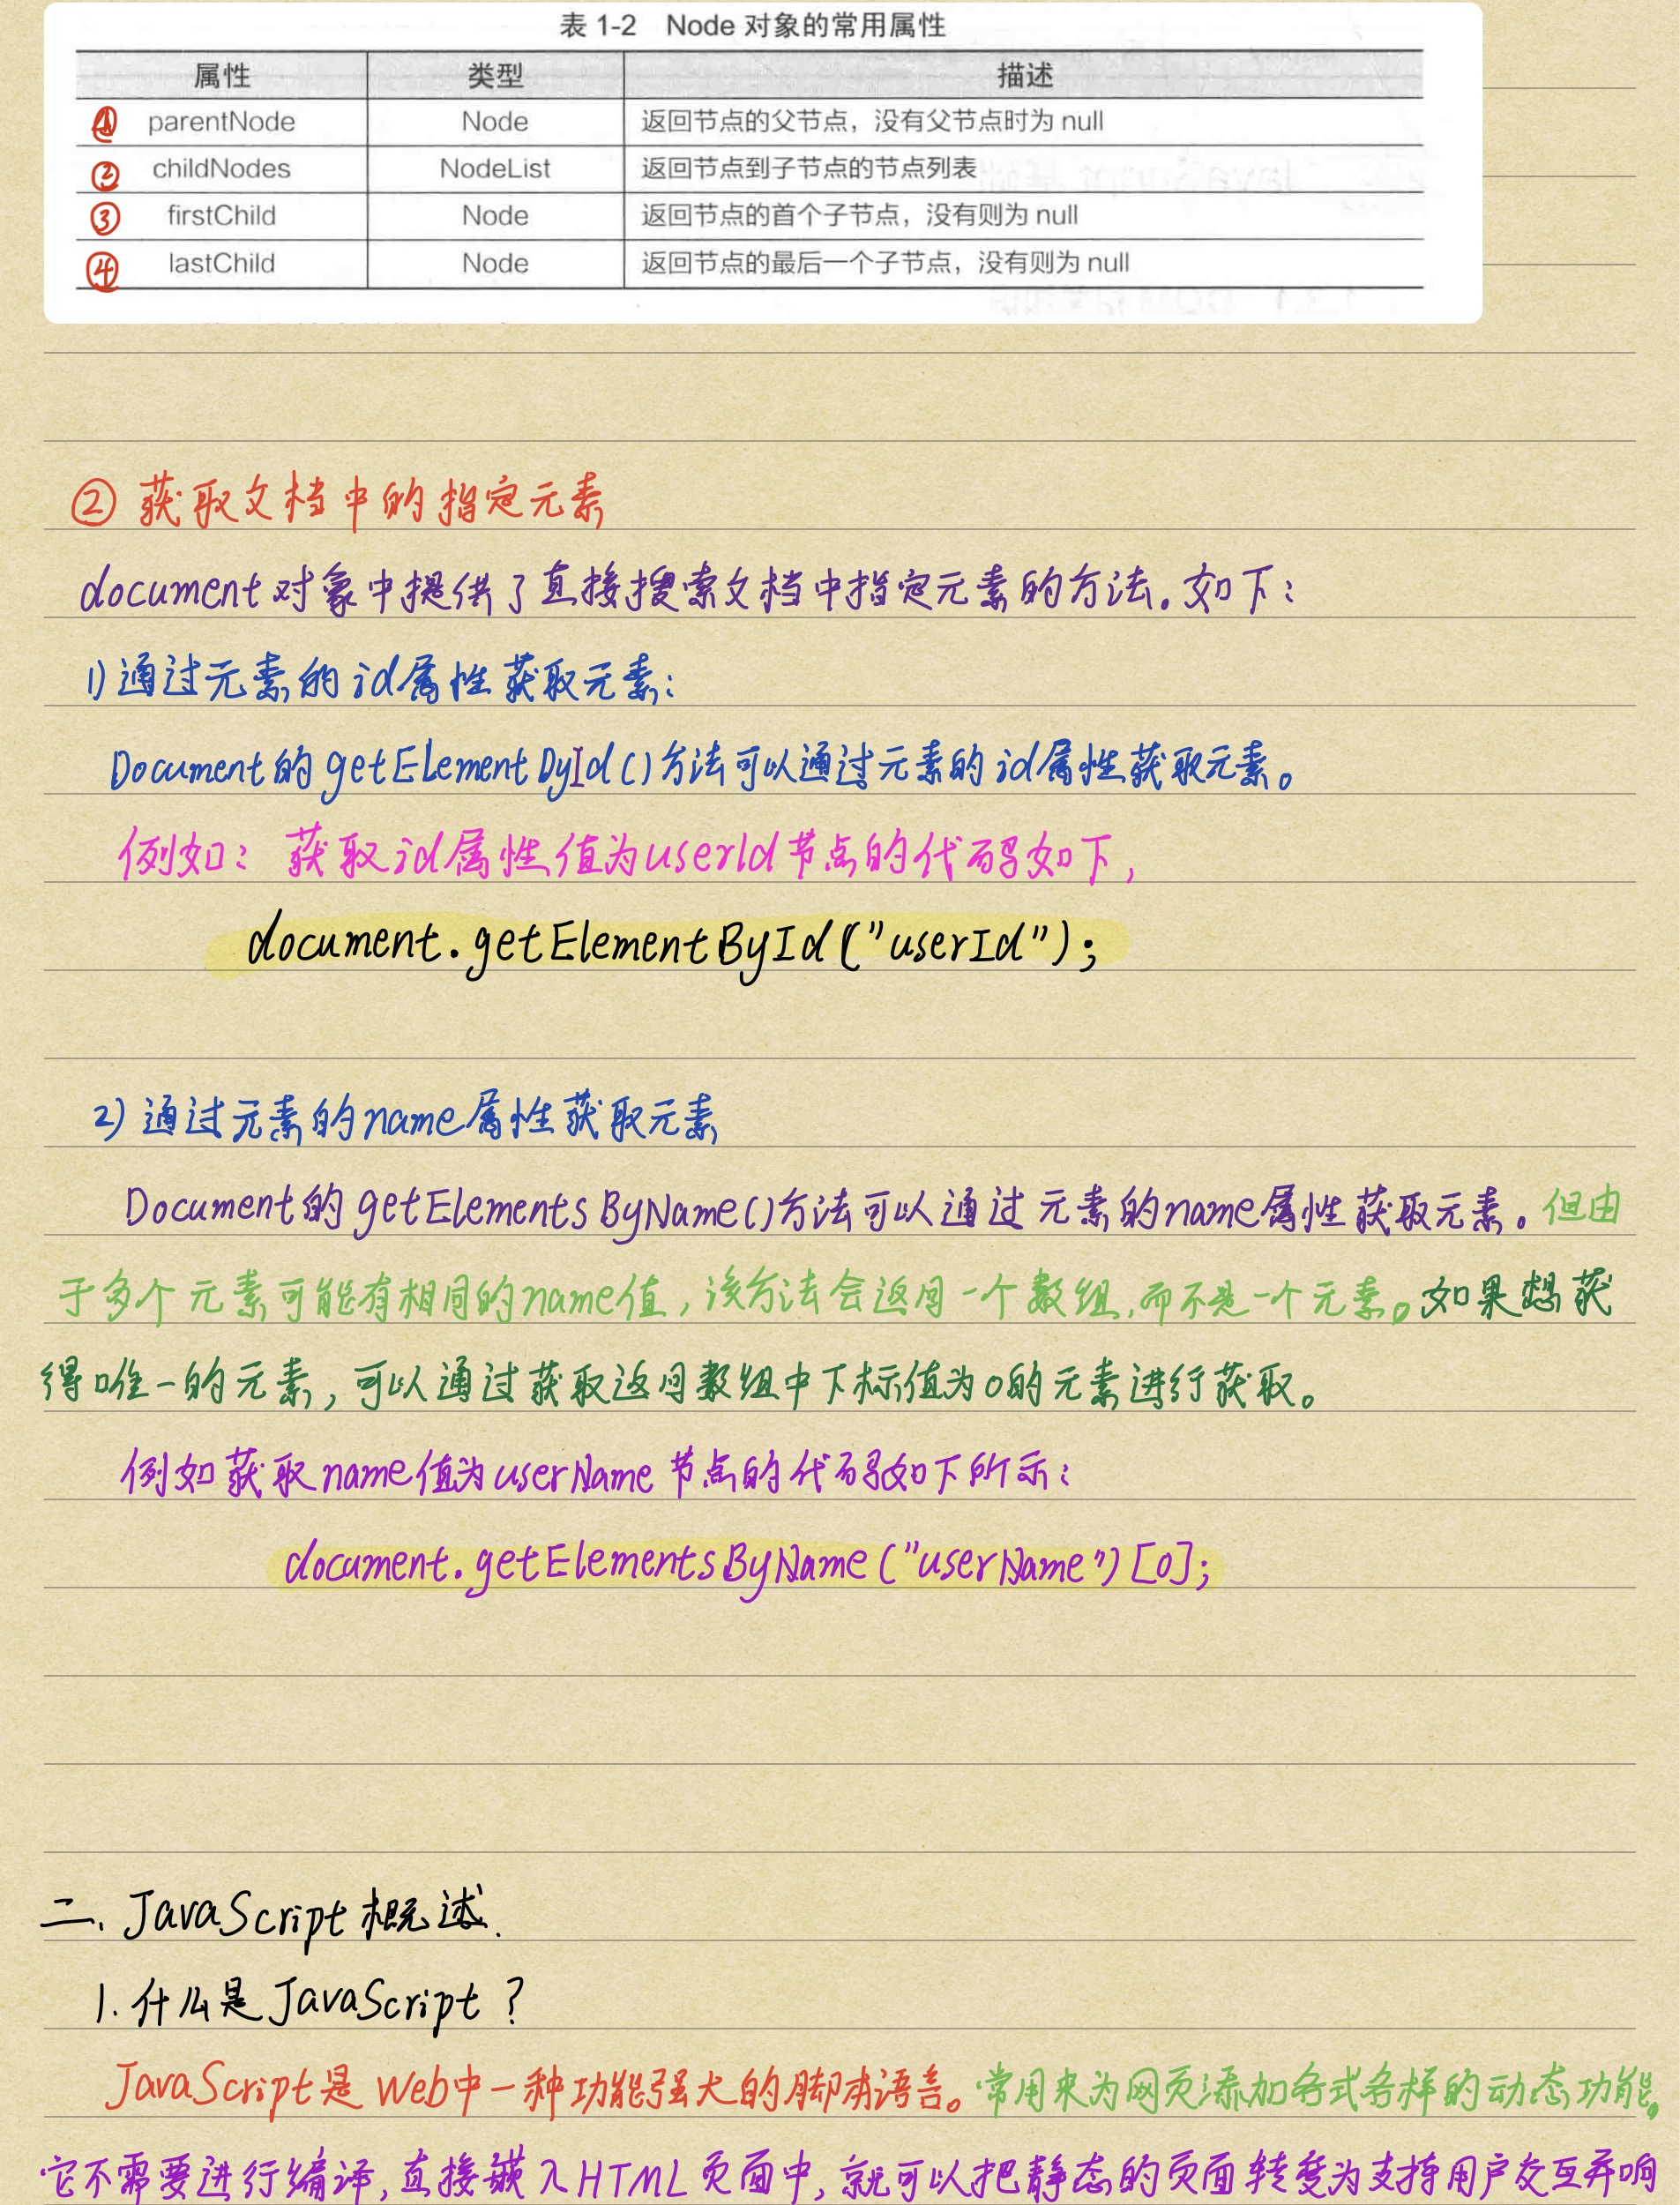 表 1-2 Node 对象的常用属性
属性 类型 描述
① parentNode Node 返回节点的父节点，没有父节点时为 null
② childNodes NodeList 返回节点到子节点的节点列表
③ firstChild Node 返回节点的首个子节点，没有则为 null
④ lastChild Node 返回节点的最后一个子节点，没有则为 null
② 获取文档中的指定元素
document对象中提供了直接搜索文档中指定元素的方法。如下：
1) 通过元素的id属性获取元素：
Document的getElementDyId()方法可以通过元素的id属性获取元素。
例如：获取id属性值为userId节点的代码如下，
document.getElementById("userId");
2) 通过元素的name属性获取元素
Document的getElementsByName()方法可以通过元素的name属性获取元素。但由
于多个元素可能有相同的name值，该方法会返回一个数组，而不是一个元素。如果想获
得唯一的元素，可以通过获取返回数组中下标值为0的元素进行获取。
例如获取name值为userName节点的代码如下所示：
document.getElementsByName("userName")[0];
二、JavaScript概述.
1. 什么是JavaScript？
JavaScript是Web中一种功能强大的脚本语言。常用来为网页添加各式各样的动态功能。
它不需要进行编译，直接嵌入HTML页面中，就可以把静态的页面转变为支持用户交互并响